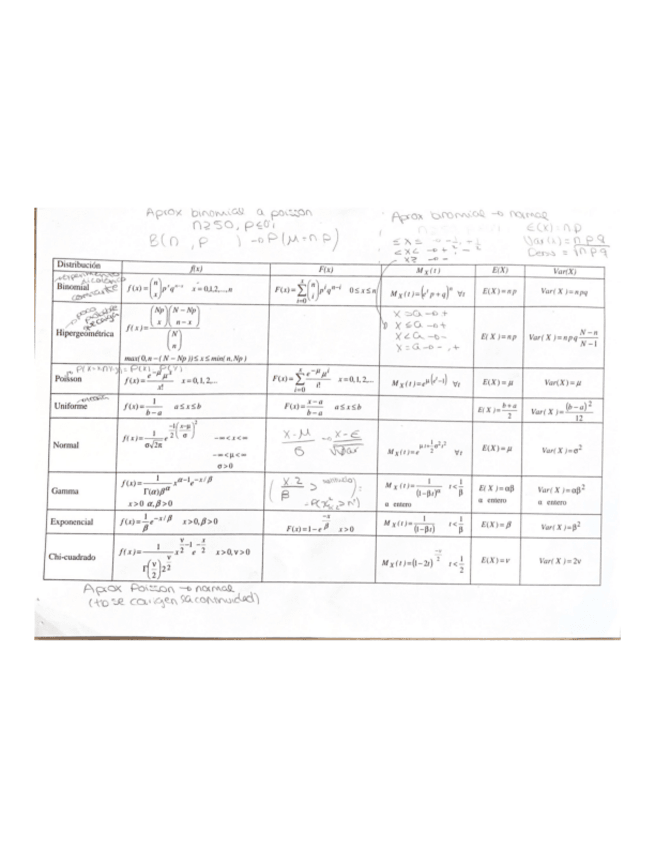 Aprox binomial a poisson
n≥50, p≤0,1
B(n , p ) → P(μ=np)
Aprox binomial → normal
E(X)=np
Var(x)=npq
Desv=√npq
Distribución f(x) F(x) M_X(t) E(X) Var(X)
Binomial f(x)=(n x) p^x q^(n-x) x=0,1,2,...,n F(x)=∑_{i=0}^{x} (n i) p^i q^(n-i) 0≤x≤n M_X(t)=(e^t p+q)^n ∀t E(X)=np Var(X)=npq
Hipergeométrica f(x)=(Np x)(N-Np n-x)/(N n) E(X)=np Var(X)=npq (N-n)/(N-1)
max(0,n-(N-Np))≤x≤min(n,Np)
x=a
x≤a→+
x<a→-
Poisson f(x)=e^(-μ) μ^x/x! x=0,1,2,... F(x)=∑_{i=0}^{x} e^(-μ) μ^i/i! x=0,1,2,... M_X(t)=e^(μ(e^t-1)) ∀t E(X)=μ Var(X)=μ
Uniforme f(x)=1/(b-a) a≤x≤b F(x)=(x-a)/(b-a) a≤x≤b E(X)=(b+a)/2 Var(X)=(b-a)^2/12
Normal f(x)=1/(σ√2π) e^(-1/2((x-μ)/σ)^2) -∞<x<∞ M_X(t)=e^(μt+1/2σ^2t^2) ∀t E(X)=μ Var(X)=σ^2
-∞<μ<∞
σ>0
X-μ/σ → X-E/√Var
Gamma f(x)=1/(Γ(α)β^α) x^(α-1) e^(-x/β) M_X(t)=1/(1-βt)^α t<1/β E(X)=αβ Var(X)=αβ^2
x>0 α,β>0 α entero α entero α entero
Exponencial f(x)=1/β e^(-x/β) x>0,β>0 F(x)=1-e^(-x/β) x>0 M_X(t)=1/(1-βt) t<1/β E(X)=β Var(X)=β^2
Chi-cuadrado f(x)=1/(Γ(ν/2)2^(ν/2)) x^(ν/2-1) e^(-x/2) x>0,ν>0 M_X(t)=(1-2t)^(-ν/2) t<1/2 E(X)=ν Var(X)=2ν
Aprox Poisson → normal
(no se corrigen sa continuidad)